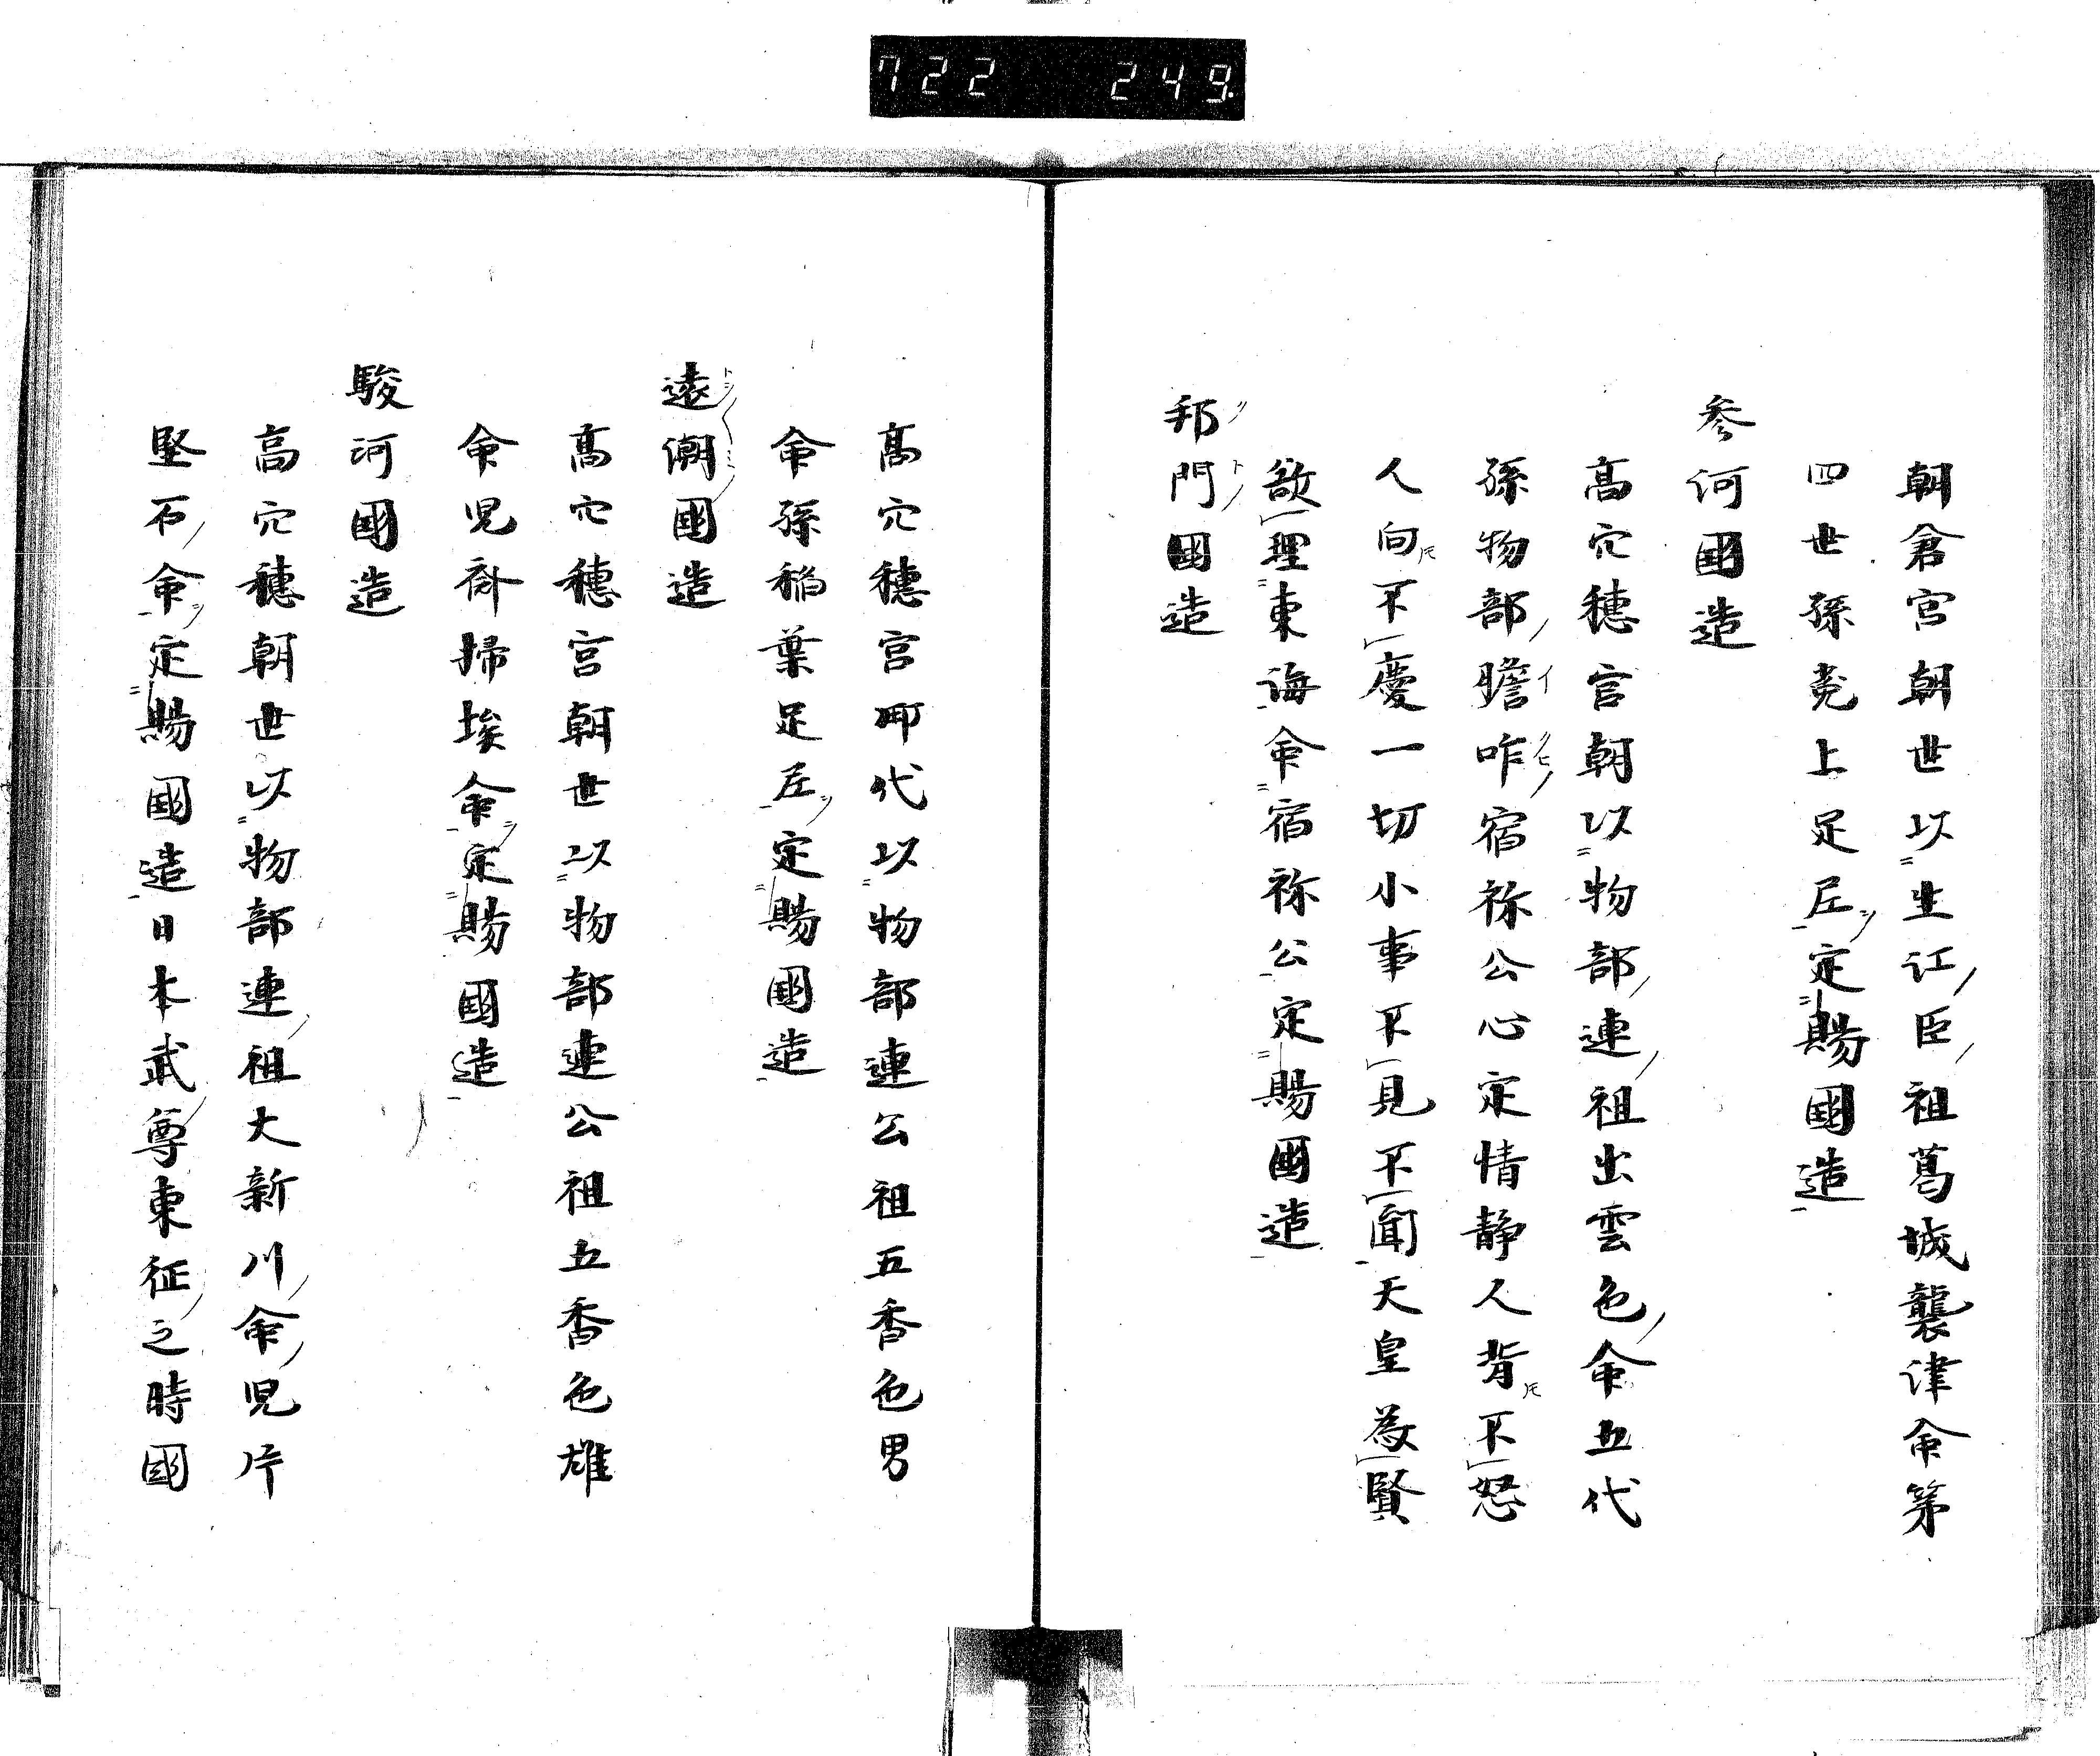 722 249.
朝倉宮朝世以生江臣祖葛城襲津命第
四世孫尭上足尼定賜國造
参河國造
高穴穗宮朝以物部連祖出雲色命五代
孫物部膽咋宿祢公心定情静人背不怒
人向不慶一切小事不見不聞天皇為賢
欲理東海命宿祢公定賜國造
邦門國造
高穴穗宮御代以物部連公祖五香色男
命孫稲葉足尼定賜國造
遠潮國造
高穴穗宮朝世以物部連公祖五香色雄
命児斎掃埃命定賜國造
駿河國造
高穴穗朝世以物部連祖大新川命児片
堅石命定賜國造日本武尊東征之時國